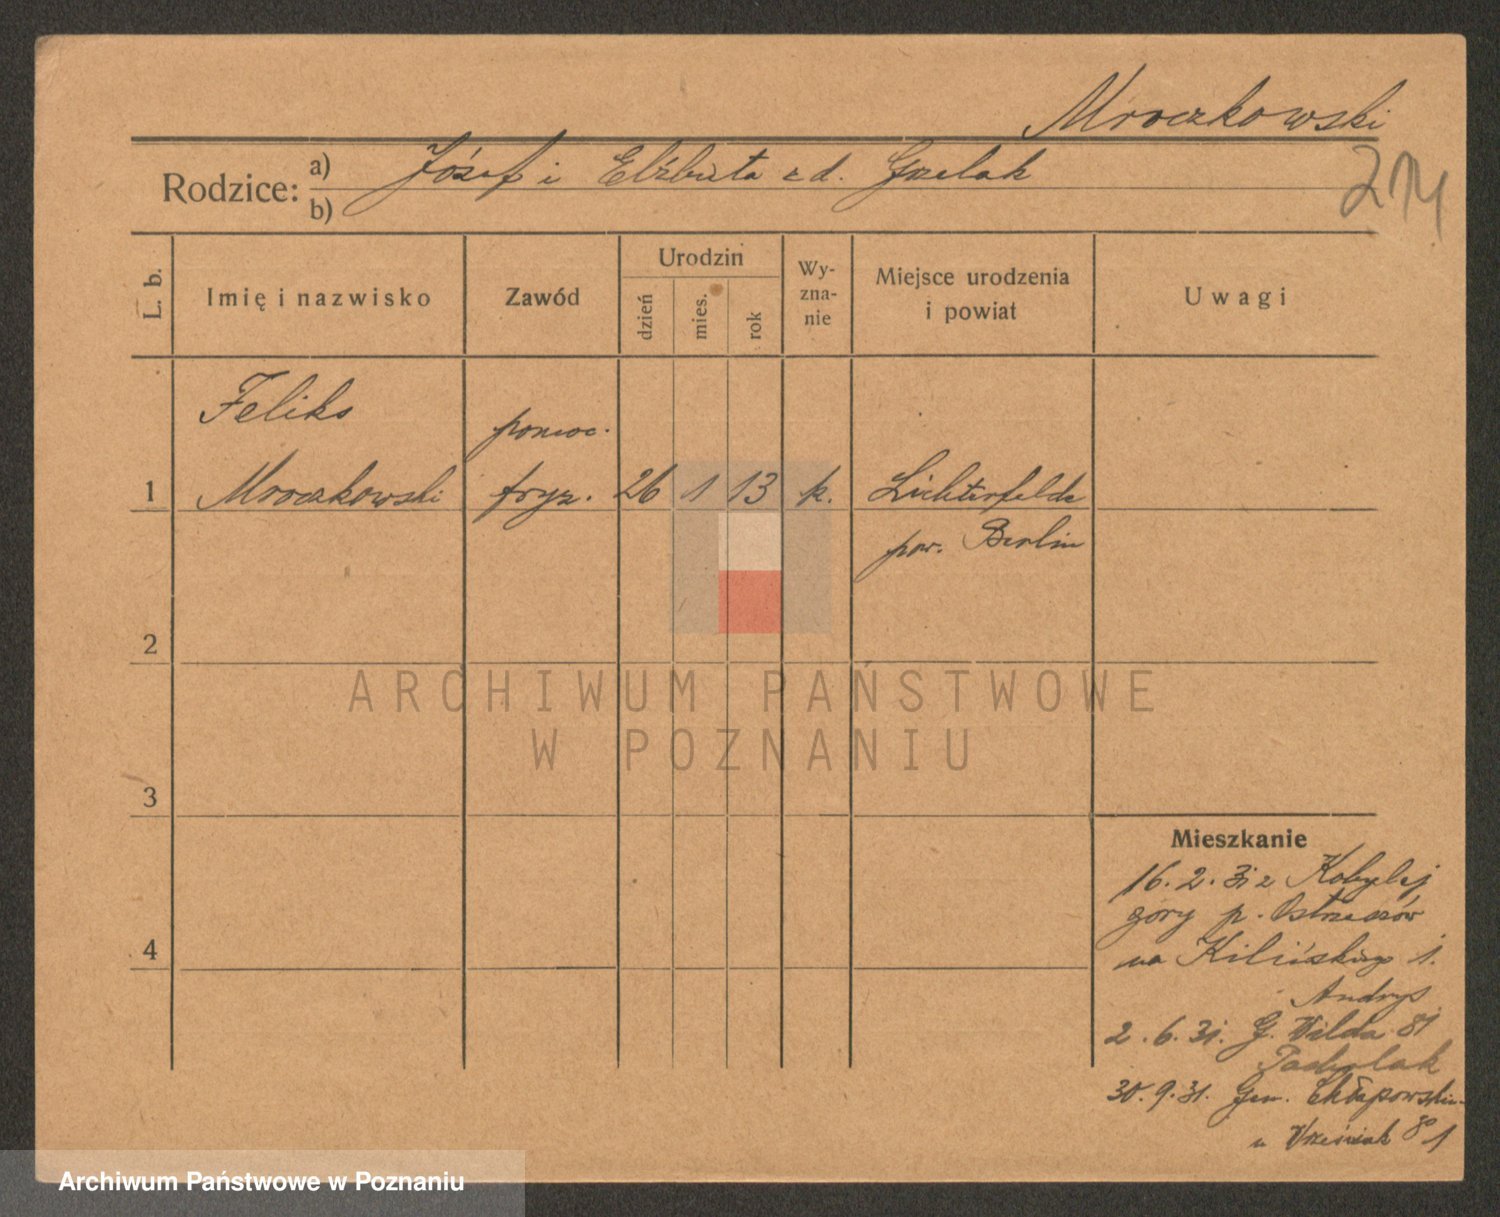 Mroczkowski
Rodzice: a) Józef i Elżbieta z d. Grzelak
b)
214
L. b. Imię i nazwisko Zawód Urodzin dzień mies. rok Wy-zna-nie Miejsce urodzenia i powiat Uwagi
Feliks pomoc.
1 Mroczkowski fryz. 26 1 13 k. Lichterfelde
pow. Berlin
2
ARCHIWUM PAŃSTWOWE
W POZNANIU
3
4
Mieszkanie
16.2.31 z Kobylej
góry p. Ostrzeszów
na Kilińskiego 1.
Andrys
2.6.31. G. Wilda 81
30.9.31. Gen. Chłapowskie-
u Wześniak 8 1
Archiwum Państwowe w Poznaniu